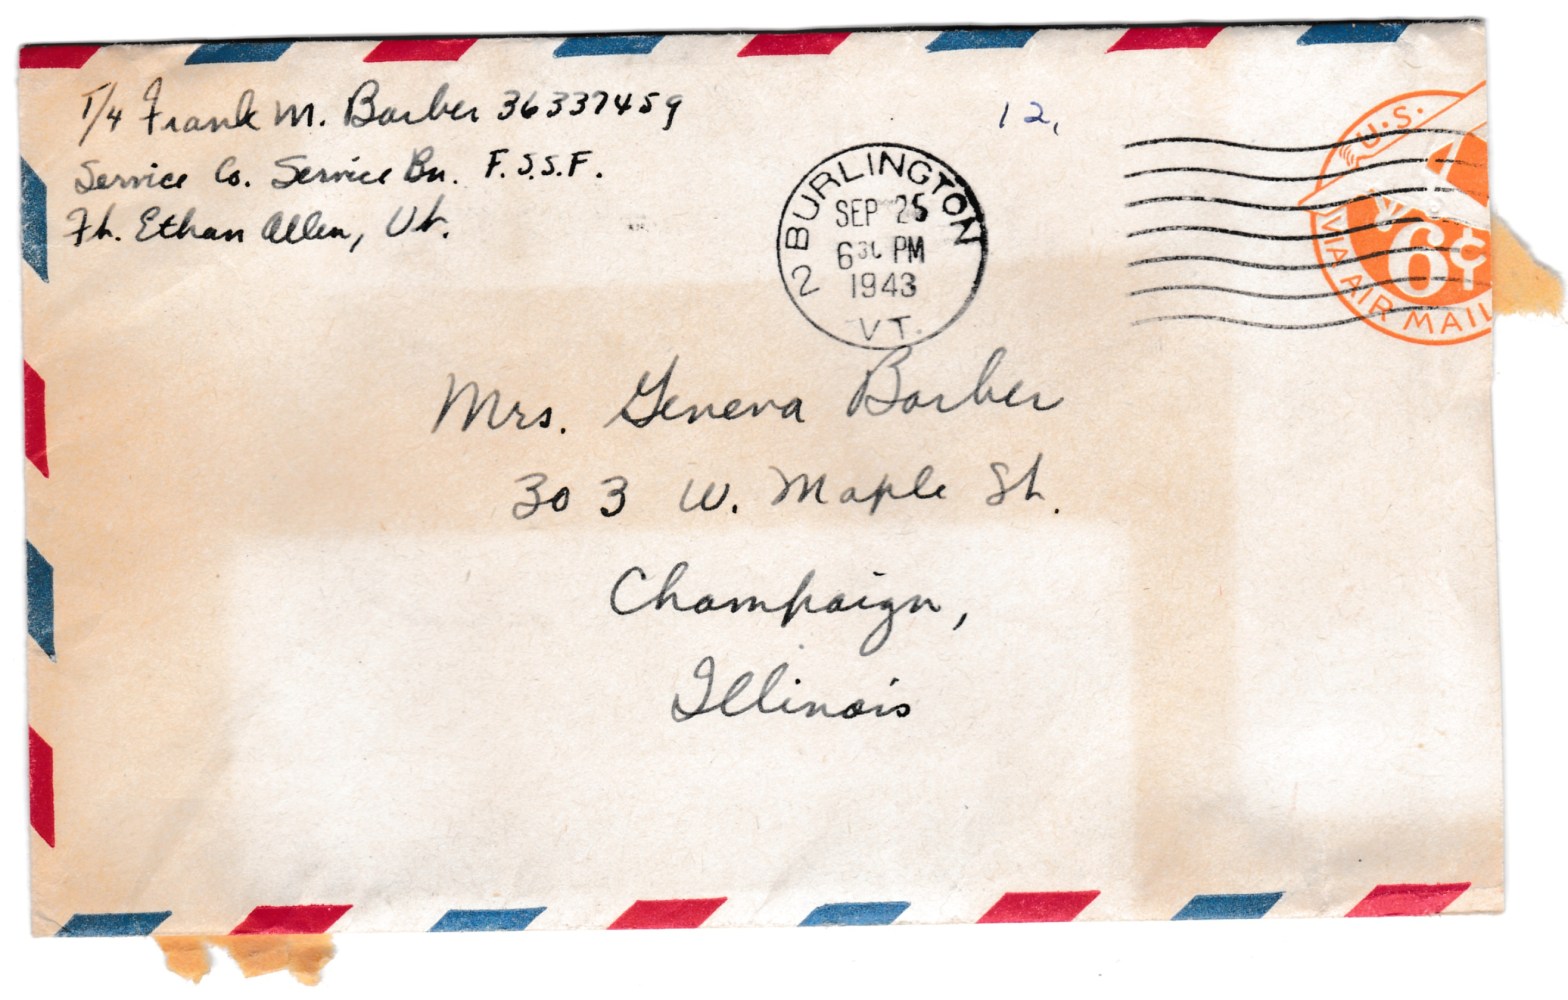 T/4 Frank M. Barber 36337459
Service Co. Service Bn. F.S.S.F.
Ft. Ethan Allen, Vt.
12,
2 BURLINGTON
SEP 25
6 30 PM
1943
VT.
U.S.
6¢
VIA AIR MAIL
Mrs. Geneva Barber
303 W. Maple St.
Champaign,
Illinois